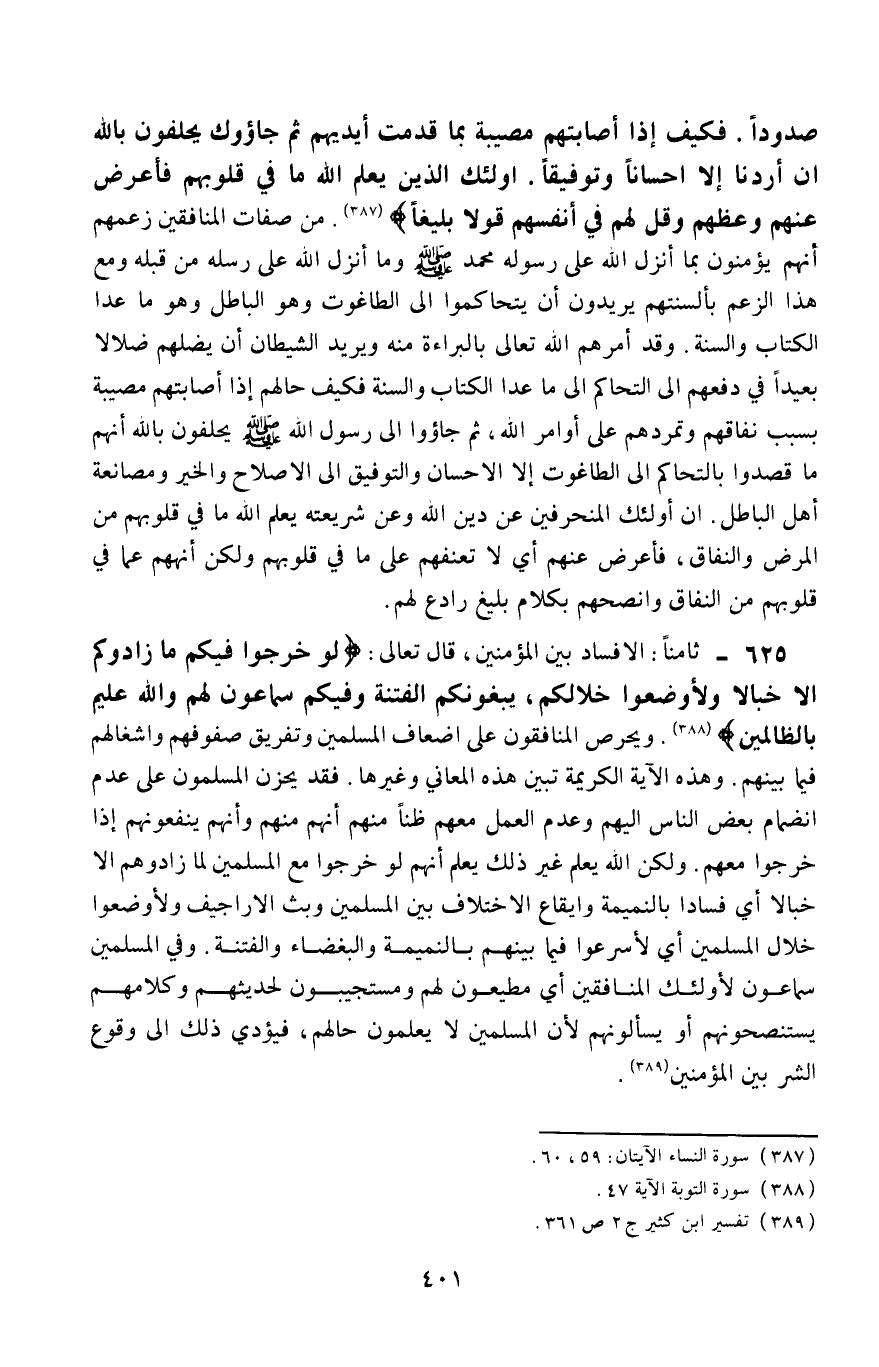 صدوداً . فكيف إذا أصابتهم مصيبة بما قدمت أيديهم ثم جاؤوك يحلفون بالله
ان أردنا إلا احساناً وتوفيقاً . اولئك الذين يعلم الله ما في قلوبهم فأعرض
عنهم وعظهم وقل لهم في أنفسهم قولا بليغاً﴾ (٣٨٧) . من صفات المنافقين زعمهم
أنهم يؤمنون بما أنزل الله على رسوله محمد ﷺ وما أنزل الله على رسله من قبله ومع
هذا الزعم بألسنتهم يريدون أن يتحاكموا الى الطاغوت وهو الباطل وهو ما عدا
الكتاب والسنة . وقد أمرهم الله تعالى بالبراءة منه ويريد الشيطان أن يضلهم ضلالا
بعيداً في دفعهم الى التحاكم الى ما عدا الكتاب والسنة فكيف حالهم إذا أصابتهم مصيبة
بسبب نفاقهم وتمردهم على أوامر الله ، ثم جاؤوا الى رسول الله ﷺ يحلفون بالله أنهم
ما قصدوا بالتحاكم الى الطاغوت إلا الاحسان والتوفيق الى الاصلاح والخير ومصانعة
أهل الباطل . ان أولئك المنحرفين عن دين الله وعن شريعته يعلم الله ما في قلوبهم من
المرض والنفاق ، فأعرض عنهم أي لا تعنفهم على ما في قلوبهم ولكن أنههم عما في
قلوبهم من النفاق وانصحهم بكلام بليغ رادع لهم .
٦٢٥ ـ ثامناً : الافساد بين المؤمنين ، قال تعالى : ﴿لو خرجوا فيكم ما زادوكم
الا خبالا ولأوضعوا خلالكم ، يبغونكم الفتنة وفيكم سماعون لهم والله عليم
بالظالمين﴾ (٣٨٨) . ويحرص المنافقون على اضعاف المسلمين وتفريق صفوفهم واشغالهم
فيما بينهم . وهذه الآية الكريمة تبين هذه المعاني وغيرها . فقد يحزن المسلمون على عدم
انضمام بعض الناس اليهم وعدم العمل معهم ظناً منهم أنهم منهم وأنهم ينفعونهم إذا
خرجوا معهم . ولكن الله يعلم غير ذلك يعلم أنهم لو خرجوا مع المسلمين لما زادوهم الا
خبالا أي فسادا بالنميمة وايقاع الاختلاف بين المسلمين وبث الاراجيف ولأوضعوا
خلال المسلمين أي لأسرعوا فيما بينهم بالنميمة والبغضاء والفتنة . وفي المسلمين
سماعون لأولئك المنافقين أي مطيعون لهم ومستجيبون لحديثهم وكلامهم
يستنصحونهم أو يسألونهم لأن المسلمين لا يعلمون حالهم ، فيؤدي ذلك الى وقوع
الشر بين المؤمنين(٣٨٩) .
(٣٨٧) سورة النساء الآيتان : ٥٩ ، ٦٠ .
(٣٨٨) سورة التوبة الآية ٤٧ .
(٣٨٩) تفسير ابن كثير ج ٢ ص ٣٦١ .
٤٠١